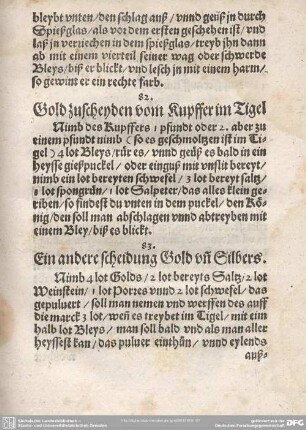 bleybt vnten/den schlag auß/ vnnd geüß jn durch
Spießglas/als vor dem ersten geschehen ist/ vnd
laß jn verriechen in dem spießglas/treyb jhn dann
ab mit einem vierteil seiner wag oder schwerde
Bleys/biß er blickt/ vnd lesch jn mit einem harm/
so gewint er ein rechte farb.
82.
Gold zuscheyden vom Kupffer im Tigel
Nimb des Kupffers 1 pfundt oder 2. aber zu
einem pfundt nimb (so es geschmoltzen ist im Ti-
gel) 4 lot Bleys/rür es/ vnnd geüß es bald in ein
heysse gießpuckel/ oder einguß mit vnslit bereyt/
nimb ein lot bereyten schwefel/ 3 lot bereyt saltz/
1 lot spongrün/ 1 lot Salpeter/das alles klein ge-
riben/so findest du vnten in dem puckel/ den Kö-
nig/den soll man abschlagen vnnd abtreyben mit
einem Bley/biß es blickt.
83.
Ein andere scheidung Gold vñ Silbers.
Nimb 4 lot Golds/ 2 lot bereyts Saltz/2 lot
Weinstein/ 1 lot Porres vnnd 2 lot schwefel/das
gepuluert/ soll man nemen vnd werffen des auff
die marck 3 lot/weñ es treybet im Tigel/ mit ein
halb lot Bleys/ man soll bald vnd als man aller
heyssest kan/das puluer einthün/ vnnd eylends
auß-